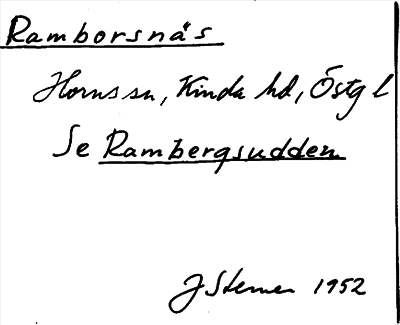 Ramborsnäs
Horns sn, Kinda hd, Östg l
Se Rambergsudden
J Sterner 1952